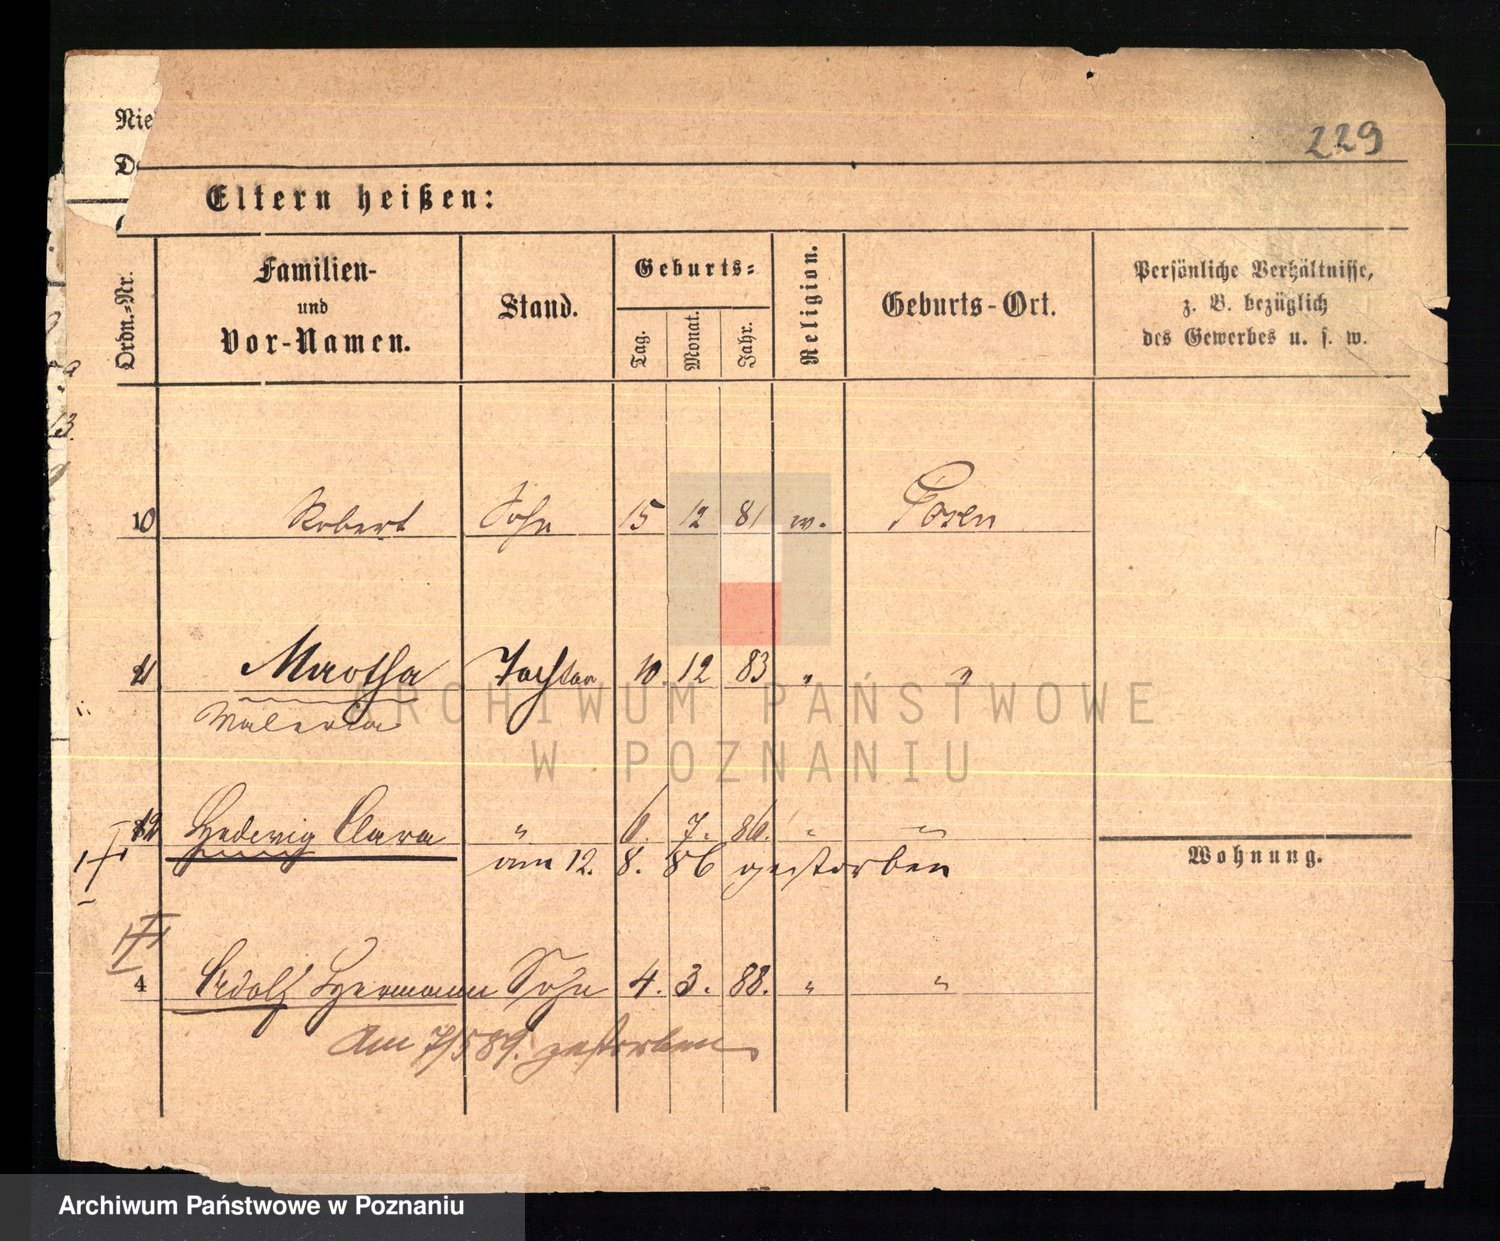 229
Nie
D
Eltern heißen:
Ordn.-Nr.
Familien-
und
Vor-Namen.
Stand.
Geburts-
Tag.
Monat.
Jahr.
Religion.
Geburts-Ort.
Persönliche Verhältnisse,
z. B. bezüglich
des Gewerbes u. s. w.
13.
10 Robert Sohn 15 12 81 w. Posen
11 Martha Tochter 10. 12 83 " "
Valeria
ARCHIWUM PAŃSTWOWE
W POZNANIU
12 Hedwig Clara " 6. 7. 86. " "
am 12. 8. 86 gestorben
Wohnung.
4 Adolf Hermann Sohn 4. 3. 88. " "
Am 7/5 89. gestorben
Archiwum Państwowe w Poznaniu